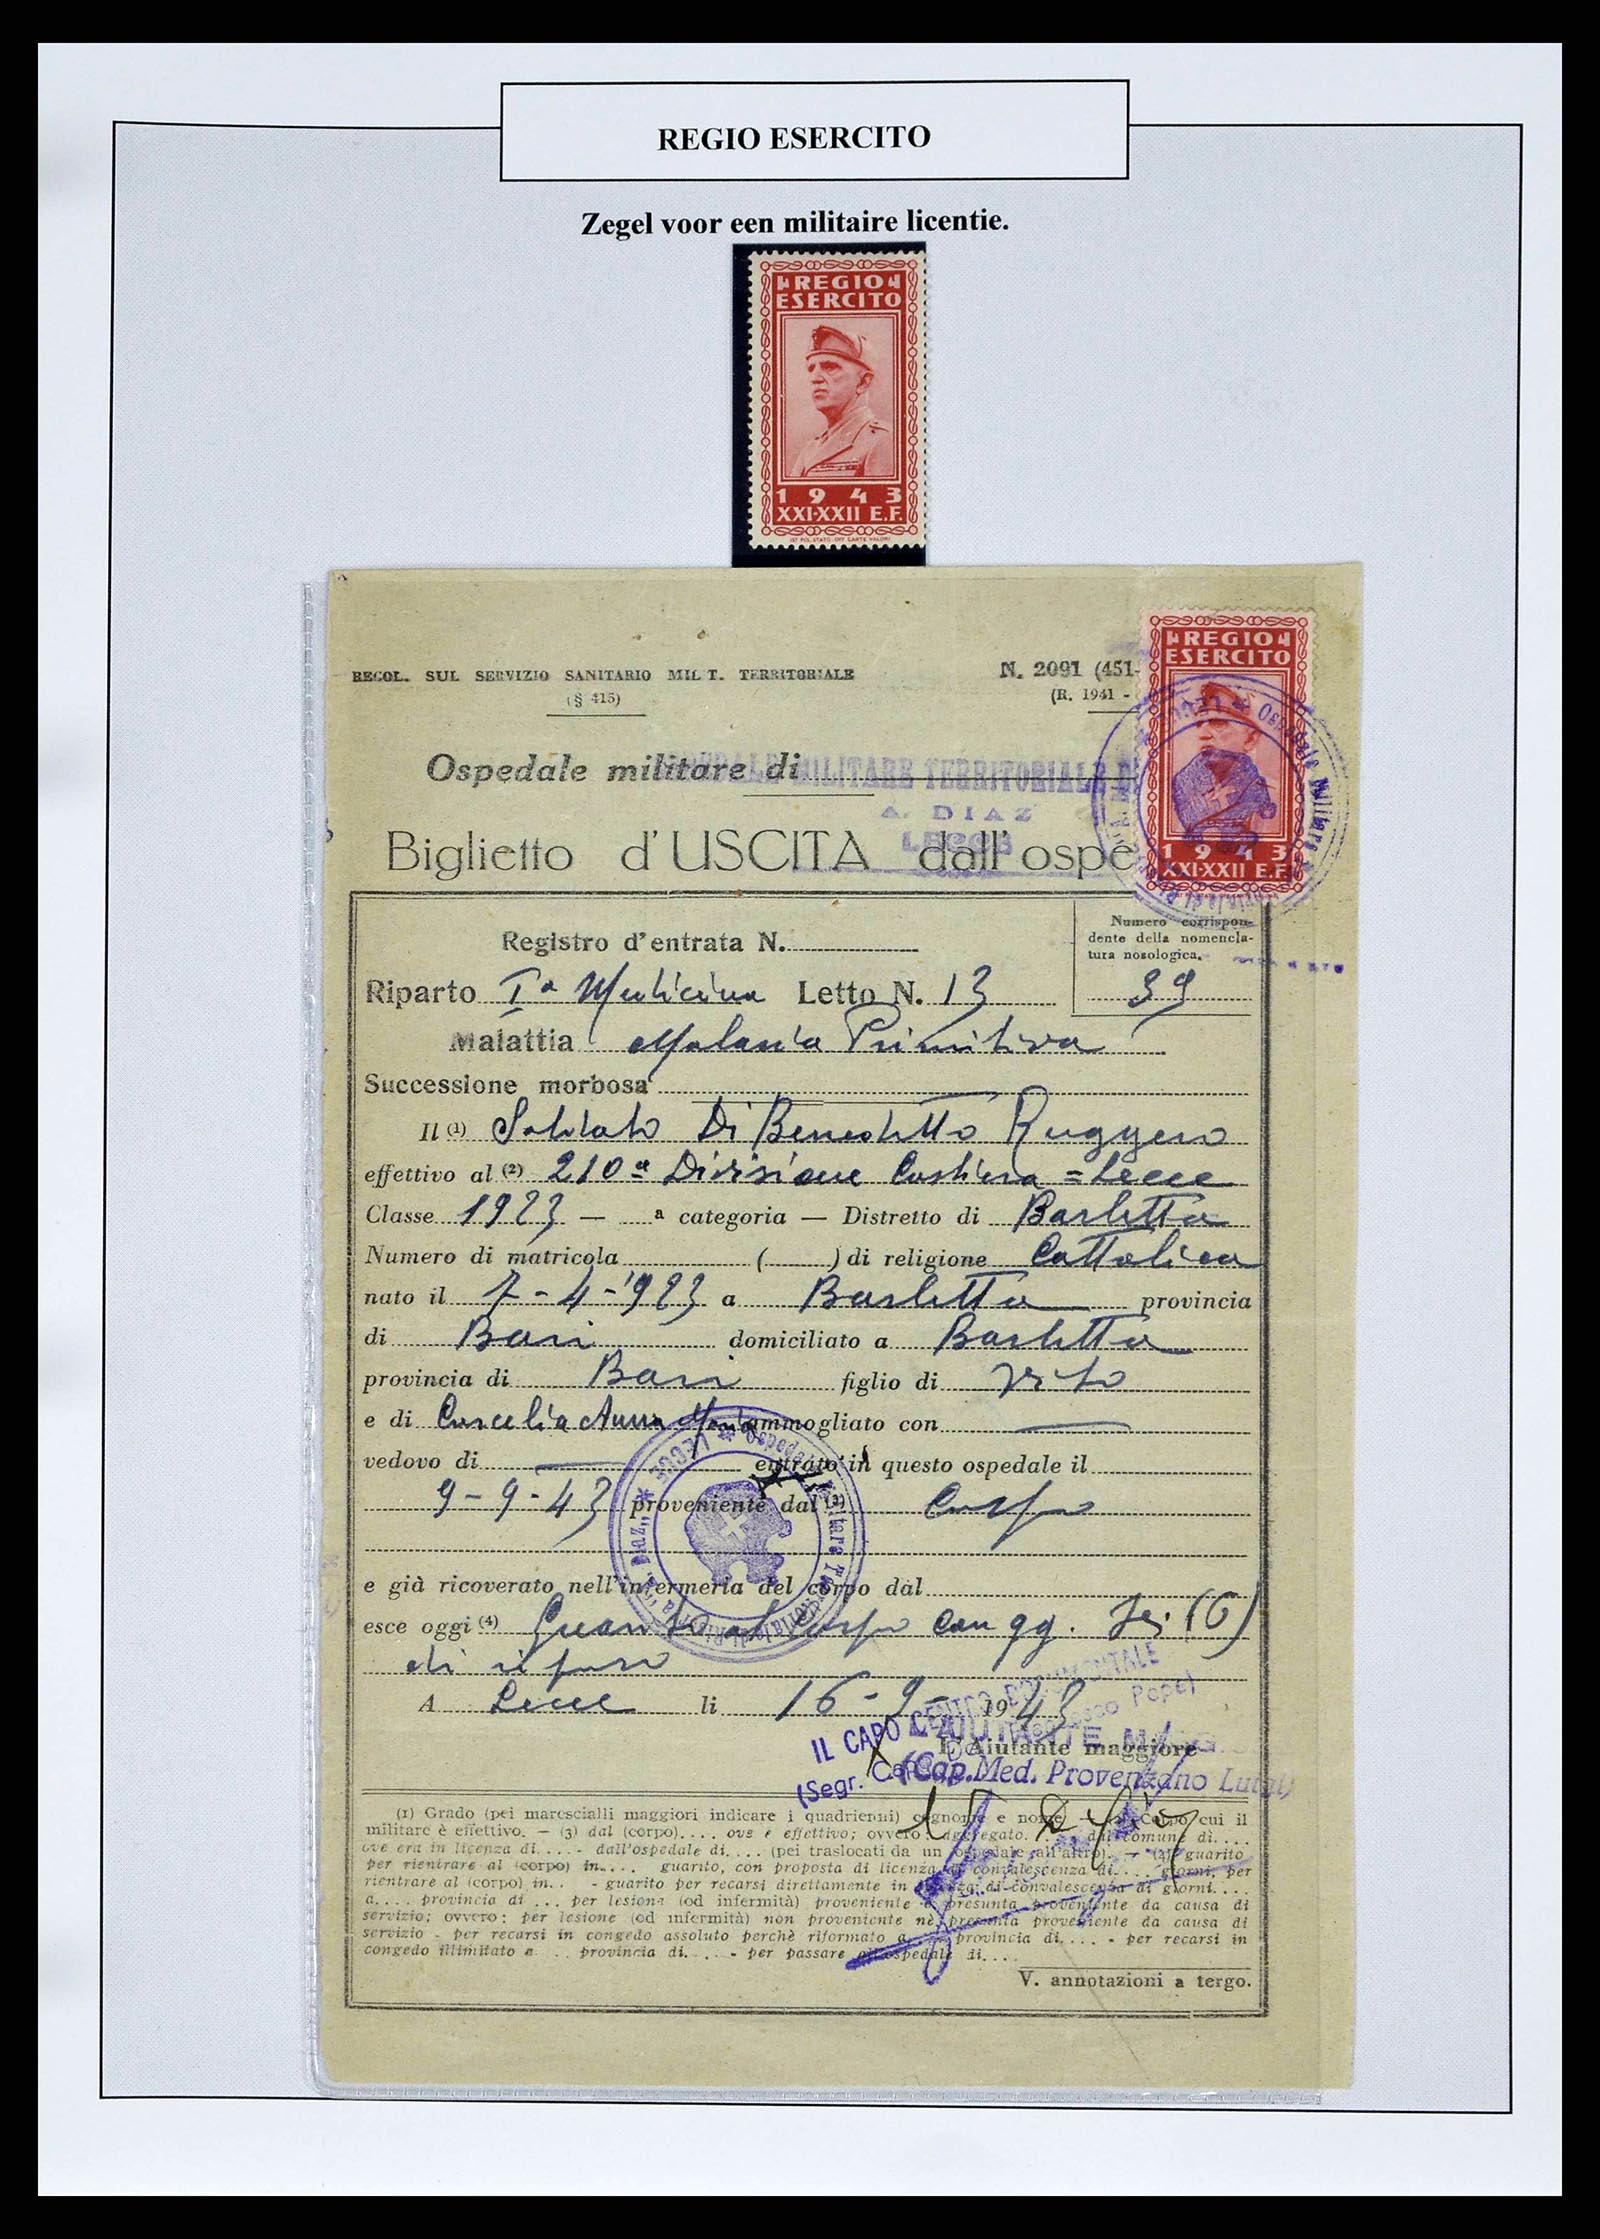 REGIO ESERCITO
Zegel voor een militaire licentie.
REGIO
ESERCITO
1943
XXI·XXII E.F.
IST. POL. STATO. OFF. CARTE VALORI
REGOL. SUL SERVIZIO SANITARIO MILIT. TERRITORIALE
(§ 415)
N. 2091 (451-
(R. 1941 -
REGIO
ESERCITO
1943
XXI·XXII E.F.
Ospedale militare di
MILITARE TERRITORIALE
A. DIAZ
LECCE
Biglietto d'USCITA dall'ospe
Registro d'entrata N.
Numero corrispon-
dente della nomencla-
tura nosologica.
Riparto Iª Medicina Letto N. 13
39
Malattia Malaria Primitiva
Successione morbosa
Il (1) Soldato Di Benedetto Ruggero
effettivo al (2) 210ª Divisione Costiera = Lecce
Classe 1923 — ª categoria — Distretto di Barletta
Numero di matricola ( ) di religione Cattolica
nato il 7-4-1923 a Barletta provincia
di Bari domiciliato a Barletta
provincia di Bari figlio di Vito
e di Anna Maria ammogliato con
vedovo di entrato in questo ospedale il
9-9-43 proveniente dal (3) Corpo
e già ricoverato nell'infermeria del corpo dal
esce oggi (4) al Corpo con gg. (6)
di riposo
A Lecce li 16-9-1943
IL CAPO CENTRO
L'AIUTANTE MAGG.
L'Aiutante maggiore
(Segr. Capo
(Cap. Med. Provenzano Luigi)
(1) Grado (pei marescialli maggiori indicare i quadrienni) cognome e nome — (2) Corpo cui il
militare è effettivo. — (3) dal (corpo).... ove è effettivo; ovvero: aggregato. dal comune di....
ove era in licenza di.... - dall'ospedale di.... (pei traslocati da un ospedale all'altro). — (4) guarito
per rientrare al (corpo) in.... guarito, con proposta di licenza di convalescenza di.... giorni, per
rientrare al (corpo) in.. - guarito per recarsi direttamente in licenza di convalescenza di giorni....
a.... provincia di ... per lesione (od infermità) proveniente o presunta proveniente da causa di
servizio; ovvero: per lesione (od infermità) non proveniente nè presunta proveniente da causa di
servizio - per recarsi in congedo assoluto perchè riformato a... provincia di.... - per recarsi in
congedo illimitato a ... provincia di.... - per passare all'ospedale di....
V. annotazioni a tergo.